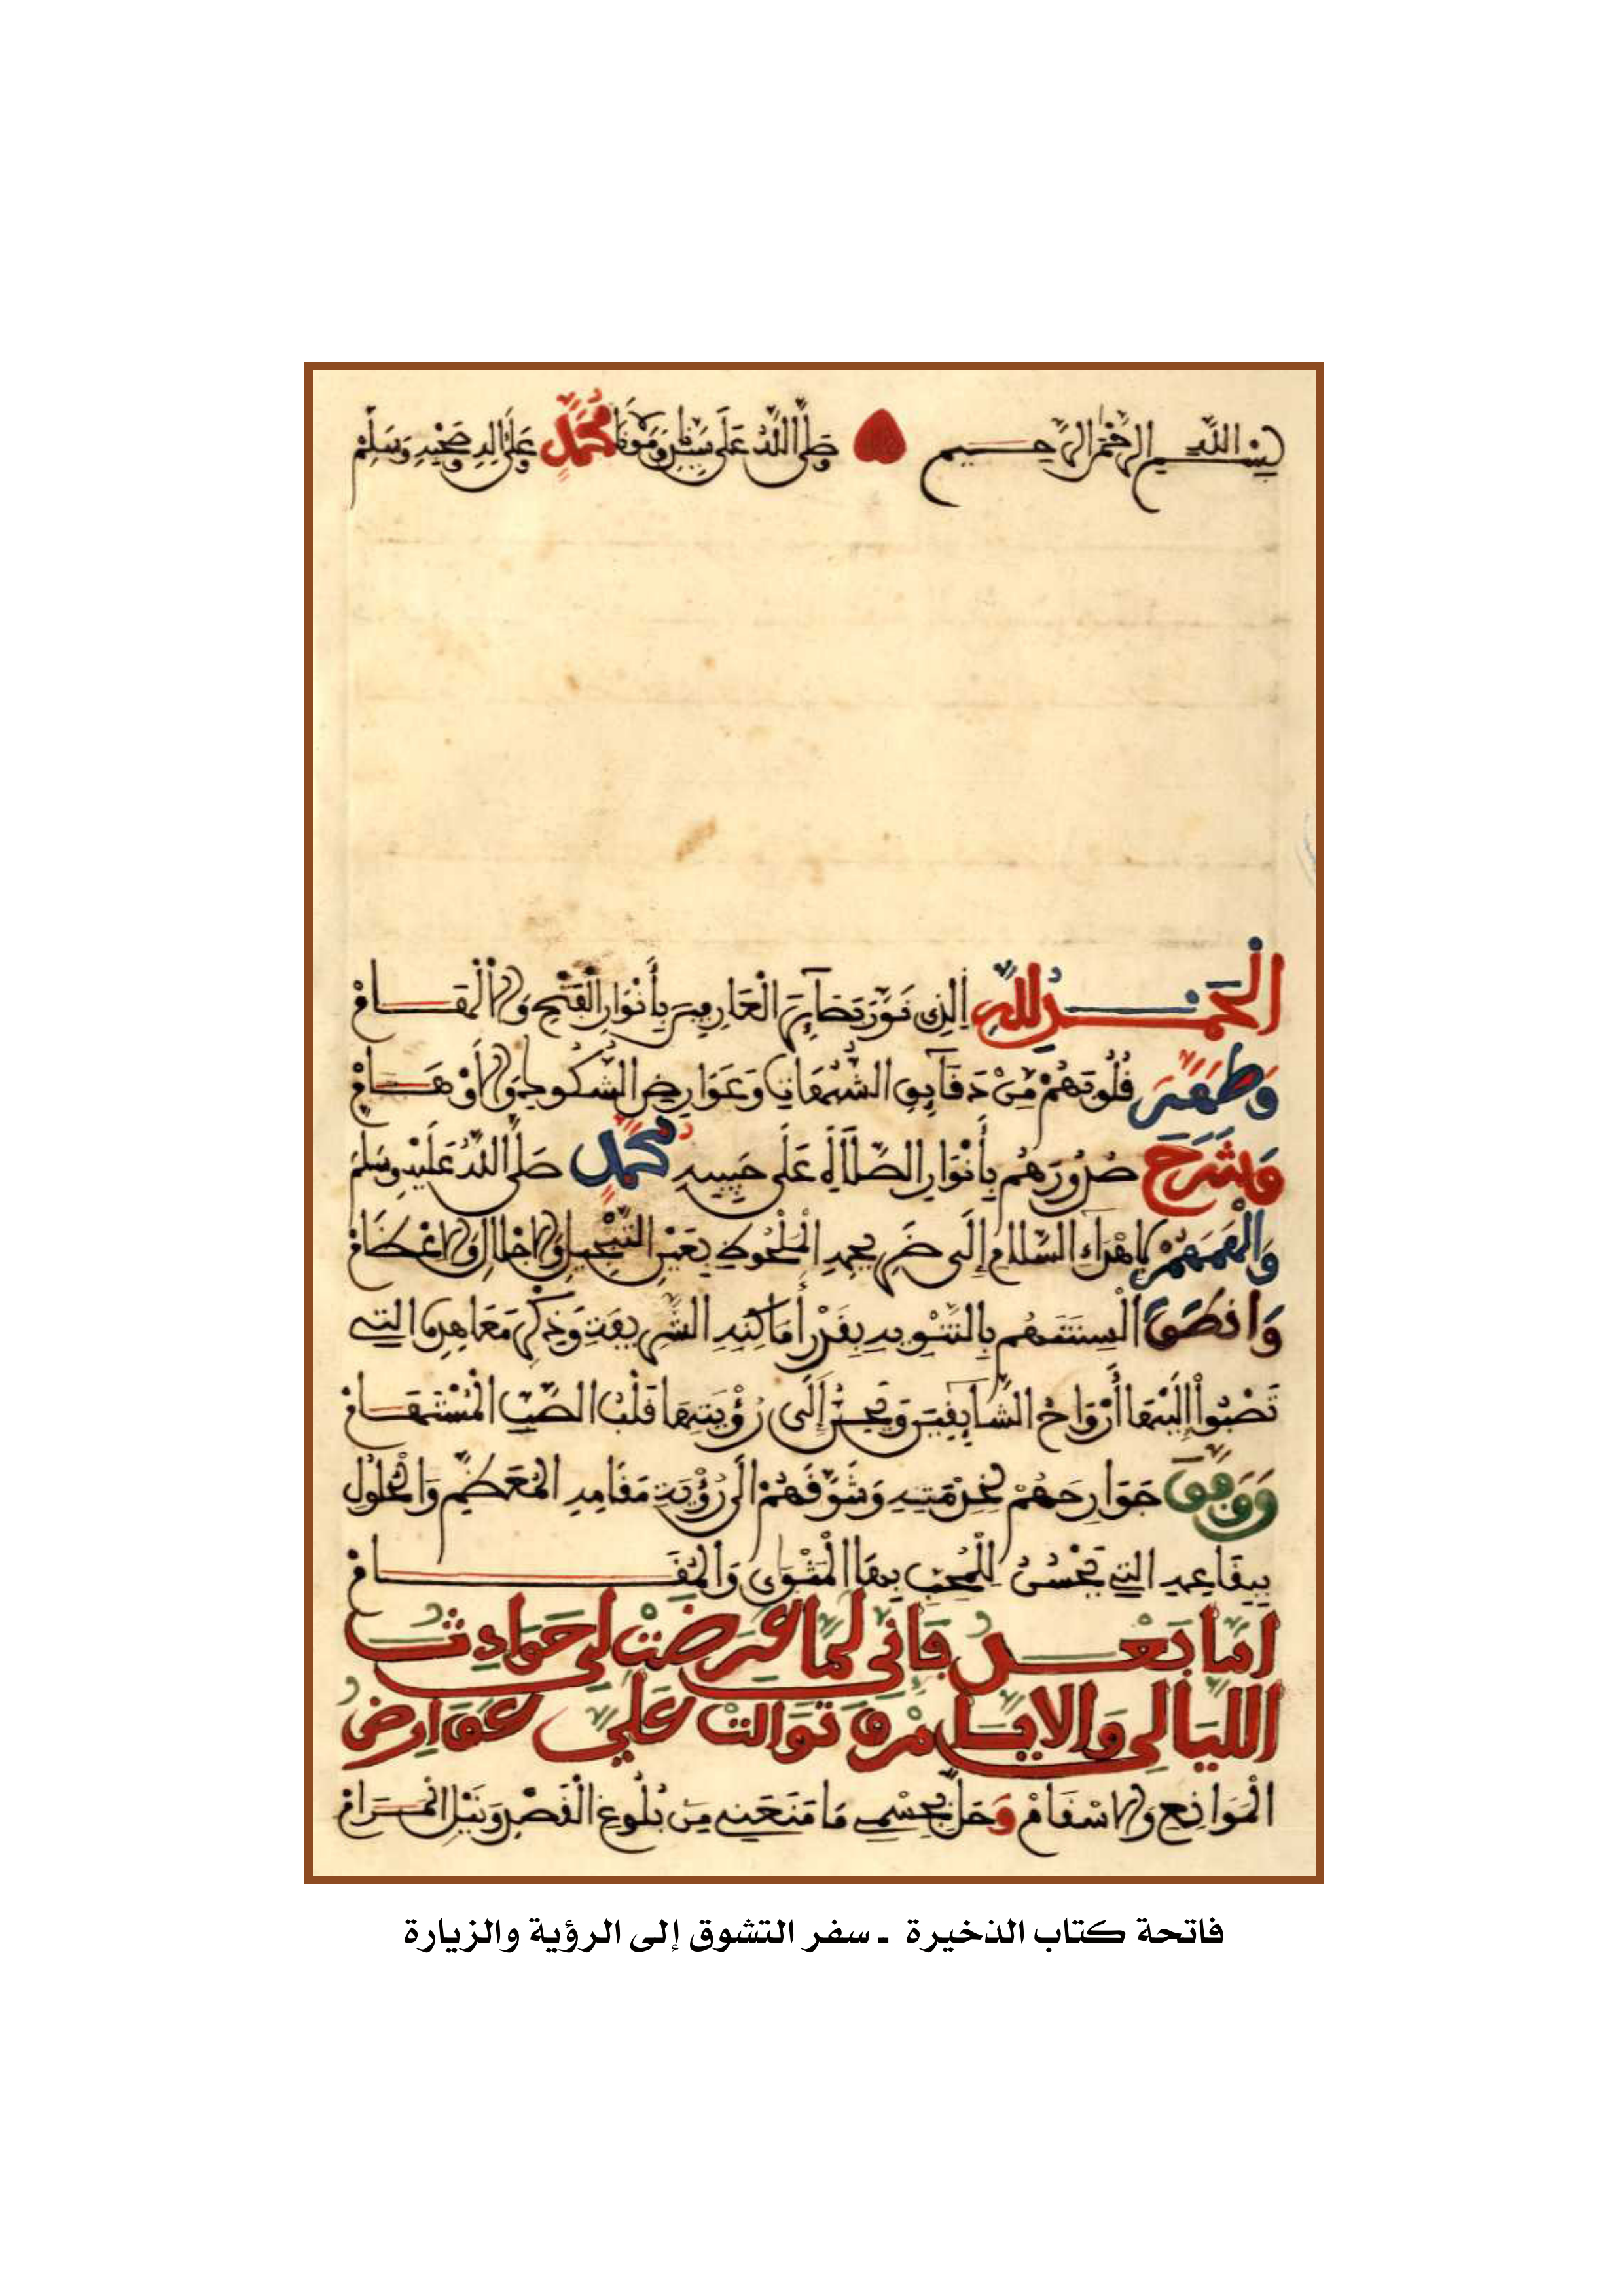 بسم الله الرحمن الرحيم وصلى الله على سيدنا ومولانا محمد وعلى اله وصحبه وسلم
الحمد لله الذي نور بصائر العارفين بأنوار الفتح والالهام
وطهر قلوبهم من دقائق الشبهات وعوارض الشكوك والأوهام
وشرح صدورهم بأنوار الصلاة على حبيبه محمد صلى الله عليه وسلم
والهمهم إلى ضريحه الملحوظ بعين التبجيل والاجلال والاعظام
وانطق ألسنتهم بالتنويه بقدر أماكنه الشريفة وذكر معاهدها التي
تصبوا إليها أرواح الشائقين وتحن إلى رؤيتها قلب الصب المستهام
ووفق جوارحهم لخدمته وشوقهم الى رؤية مقامه المعظم والحلول
ببقاعه التي يحسن للمحب بها المثوى والمقام
اما بعد فاني لما عرضت لي حوادث
الليالي والايام وتوالت علي عوارض
الموانع والاسقام وحل بجسمي ما منعني من بلوغ القصد ونيل المرام
فاتحة كتاب الذخيرة ـ سفر التشوق إلى الرؤية والزيارة